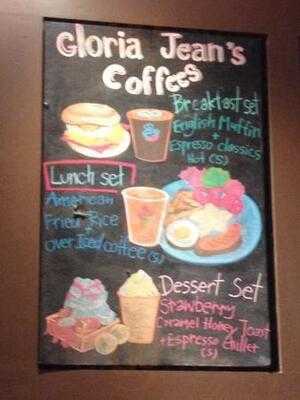 Gloria Jean's
Coffees
Breakfast set
English Muffin
+
Espresso classics
Hot (S)
Lunch set
American
Fried Rice
+
Over Iced coffee (S)
Dessert Set
Strawberry
Caramel Honey Toast
+ Espresso Chiller
(S)